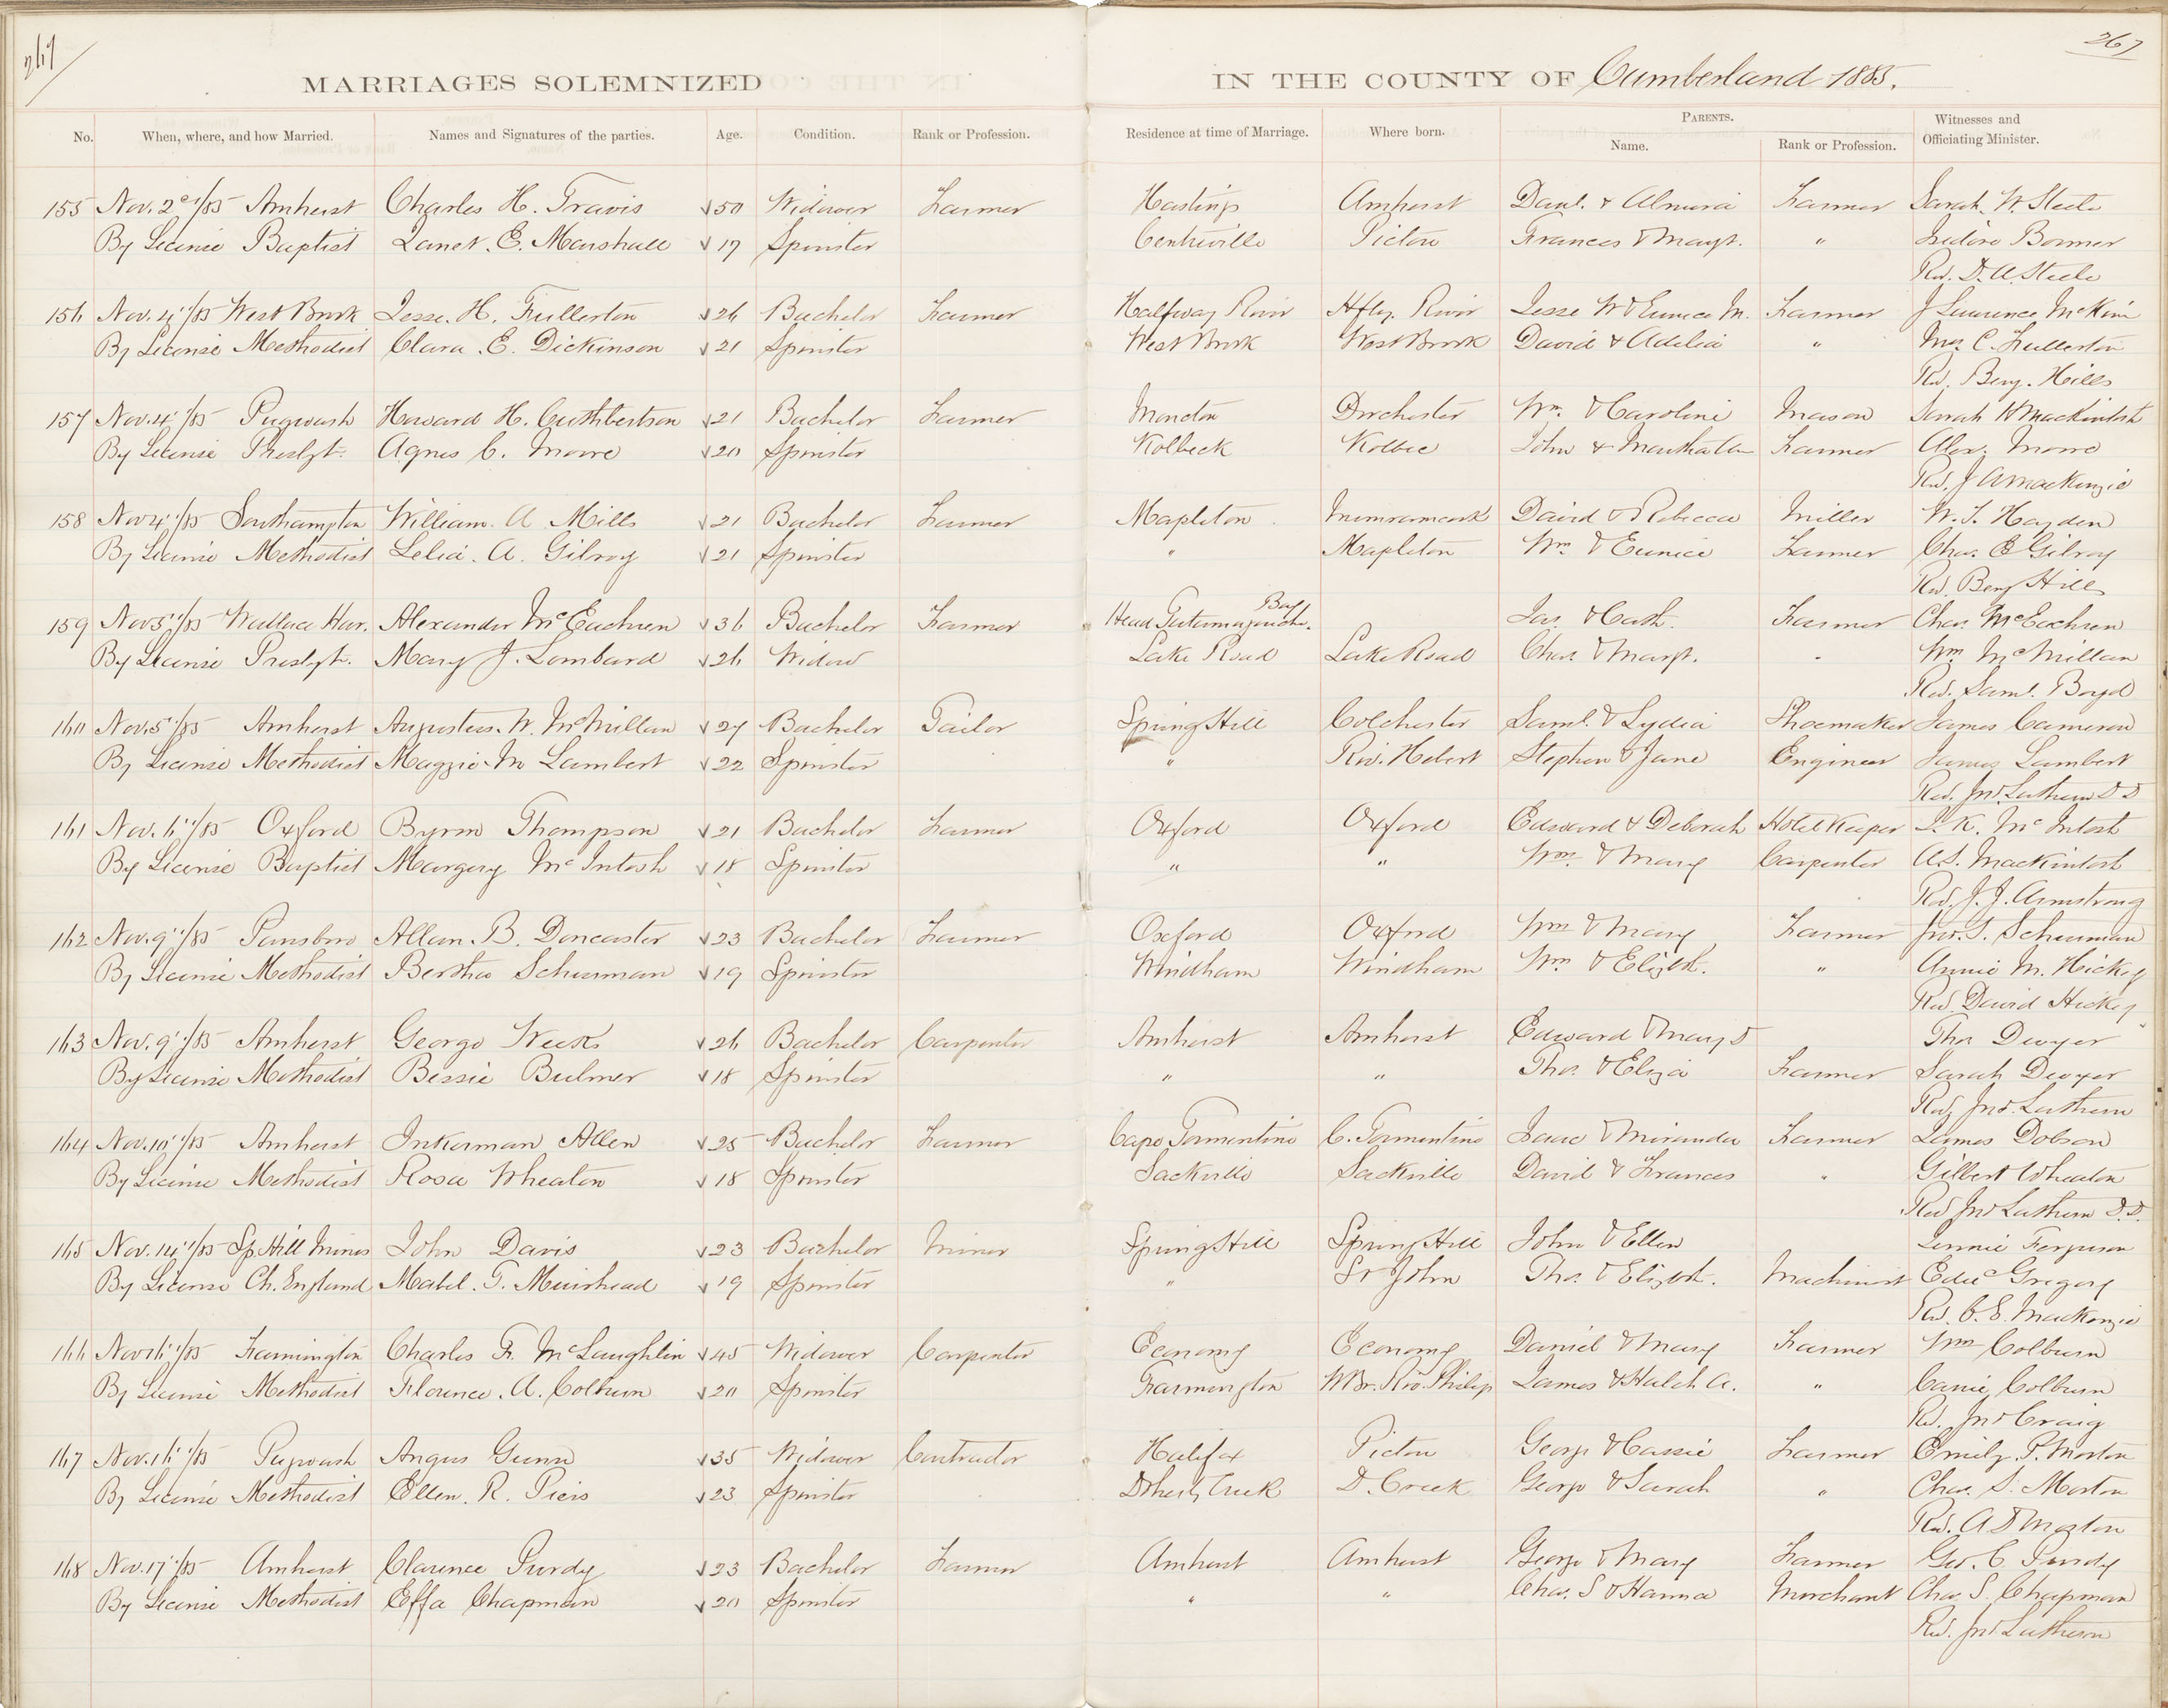 267
267
MARRIAGES SOLEMNIZED IN THE COUNTY OF Cumberland 1885.
No. When, where, and how Married. Names and Signatures of the parties. Age. Condition. Rank or Profession. Residence at time of Marriage. Where born. PARENTS. Name. Rank or Profession. Witnesses and Officiating Minister.
155 Nov. 2"/85 Amherst Charles H. Travis 50 Widower Farmer Hastings Amherst Danl. & Almira Farmer Sarah W. Steele
By License Baptist Janet. E. Marshall 19 Spinster Centreville Pictou Frances & Margt. " Isidore Bonner
Rev. D. A. Steele
156 Nov. 4"/85 West Brook Jesse. H. Fullerton 26 Bachelor Farmer Halfway River Hfly. River Jesse W & Eunice M. Farmer J Lawrence McKim
By License Methodist Clara. E. Dickinson 21 Spinster West Brook West Brook David & Adelia " Mrs C. Fullerton
Rev. Benj. Hills
157 Nov. 4"/85 Pugwash Howard H. Cuthbertson 21 Bachelor Farmer Moncton Dorchester Wm. & Caroline Mason Sarah H MacKintosh
By License Presbyt. Agnes C. Moore 20 Spinster Kolbeck Kolbec John & Martha Ann Farmer Alex. Moore
Rev. J A MacKenzie
158 Nov 4"/85 Southampton William. A Mills 21 Bachelor Farmer Mapleton Memramcook David & Rebecca Miller W. T. Hayden
By License Methodist Lelia. A. Gilroy 21 Spinster " Mapleton Wm & Eunice Farmer Chas. E Gilroy
Rev. Benj Hills
159 Nov 5"/85 Wallace Har. Alexander McEachren 36 Bachelor Farmer Head Tatamagouche. Bay Jas. & Cath. Farmer Chas. McEachren
By License Presbyt. Mary J. Lombard 26 Widow Lake Road Lake Road Chas & Margt. " Wm McMillan
Rev. Saml. Boyd
160 Nov. 5"/85 Amherst Augustus. W. McMillan 27 Bachelor Tailor Spring Hill Colchester Saml. & Lydia Shoemaker James Cameron
By License Methodist Maggie. M Lambert 22 Spinster " Riv. Hebert Stephen & Jane Engineer James Lambert
Rev. Jno. Lathern D D
161 Nov. 6"/85 Oxford Byron Thompson 21 Bachelor Farmer Oxford Oxford Edward & Deborah Hotel Keeper L. K. McIntosh
By License Baptist Margery McIntosh 18 Spinster " " Wm. & Mary Carpenter A. S. MacKintosh
Rev. J. J. Armstrong
162 Nov. 9"/85 Parrsboro Allan. B. Doncaster 23 Bachelor Farmer Oxford Oxford Wm & Mary Farmer Jno. S. Schurman
By License Methodist Bertha Schurman 19 Spinster Windham Windham Wm & Elizbth. " Annie M. Hickey
Rev David Hickey
163 Nov. 9"/85 Amherst George Weeks 26 Bachelor Carpenter Amherst Amherst Edward & Mary D Thos Dwyer
By License Methodist Bessie Bulmer 18 Spinster " " Thos. & Eliza Farmer Sarah Dwyer
Rev Jno. Lathern
164 Nov. 10"/85 Amherst Inkerman Allen 25 Bachelor Farmer Cape Tormentine C. Tormentine Isaac & Miranda Farmer James Dobson
By License Methodist Rosa Wheaton 18 Spinster Sackville Sackville David & Frances " Gilbert Wheaton
Rev Jno Lathern D.D.
165 Nov. 14"/85 Sp. Hill Mines John Davis 23 Bachelor Miner Spring Hill Spring Hill John & Ellen Jennie Ferguson
By License Ch. England Mabel. T. Muirhead 19 Spinster " St John Thos. & Elizbth. Machinist Gregory
Rev. C. E. MacKenzie
166 Nov 16"/85 Farmington Charles F. McLaughlin 45 Widower Carpenter Economy Economy Daniel & Mary Farmer Wm Colburn
By License Methodist Florence. A. Colburn 20 Spinster Farmington W Br. Riv. Philip James & A. " Carrie Colburn
Rev. Jno Craig
167 Nov. 16"/85 Pugwash Angus Gunn 35 Widower Contractor Halifax Pictou George & Cassie Farmer Emily. P. Morton
By License Methodist Ellen. R. Piers 23 Spinster Doherty Creek D. Creek George & Sarah " Chas. S. Morton
Rev. A D Morton
168 Nov. 17"/85 Amherst Clarence Purdy 23 Bachelor Farmer Amherst Amherst George & Mary Farmer Geo. C. Purdy
By License Methodist Effa Chapman 20 Spinster " " Chas. S & Hanna Merchant Chas. S. Chapman
Rev. Jno Lathern